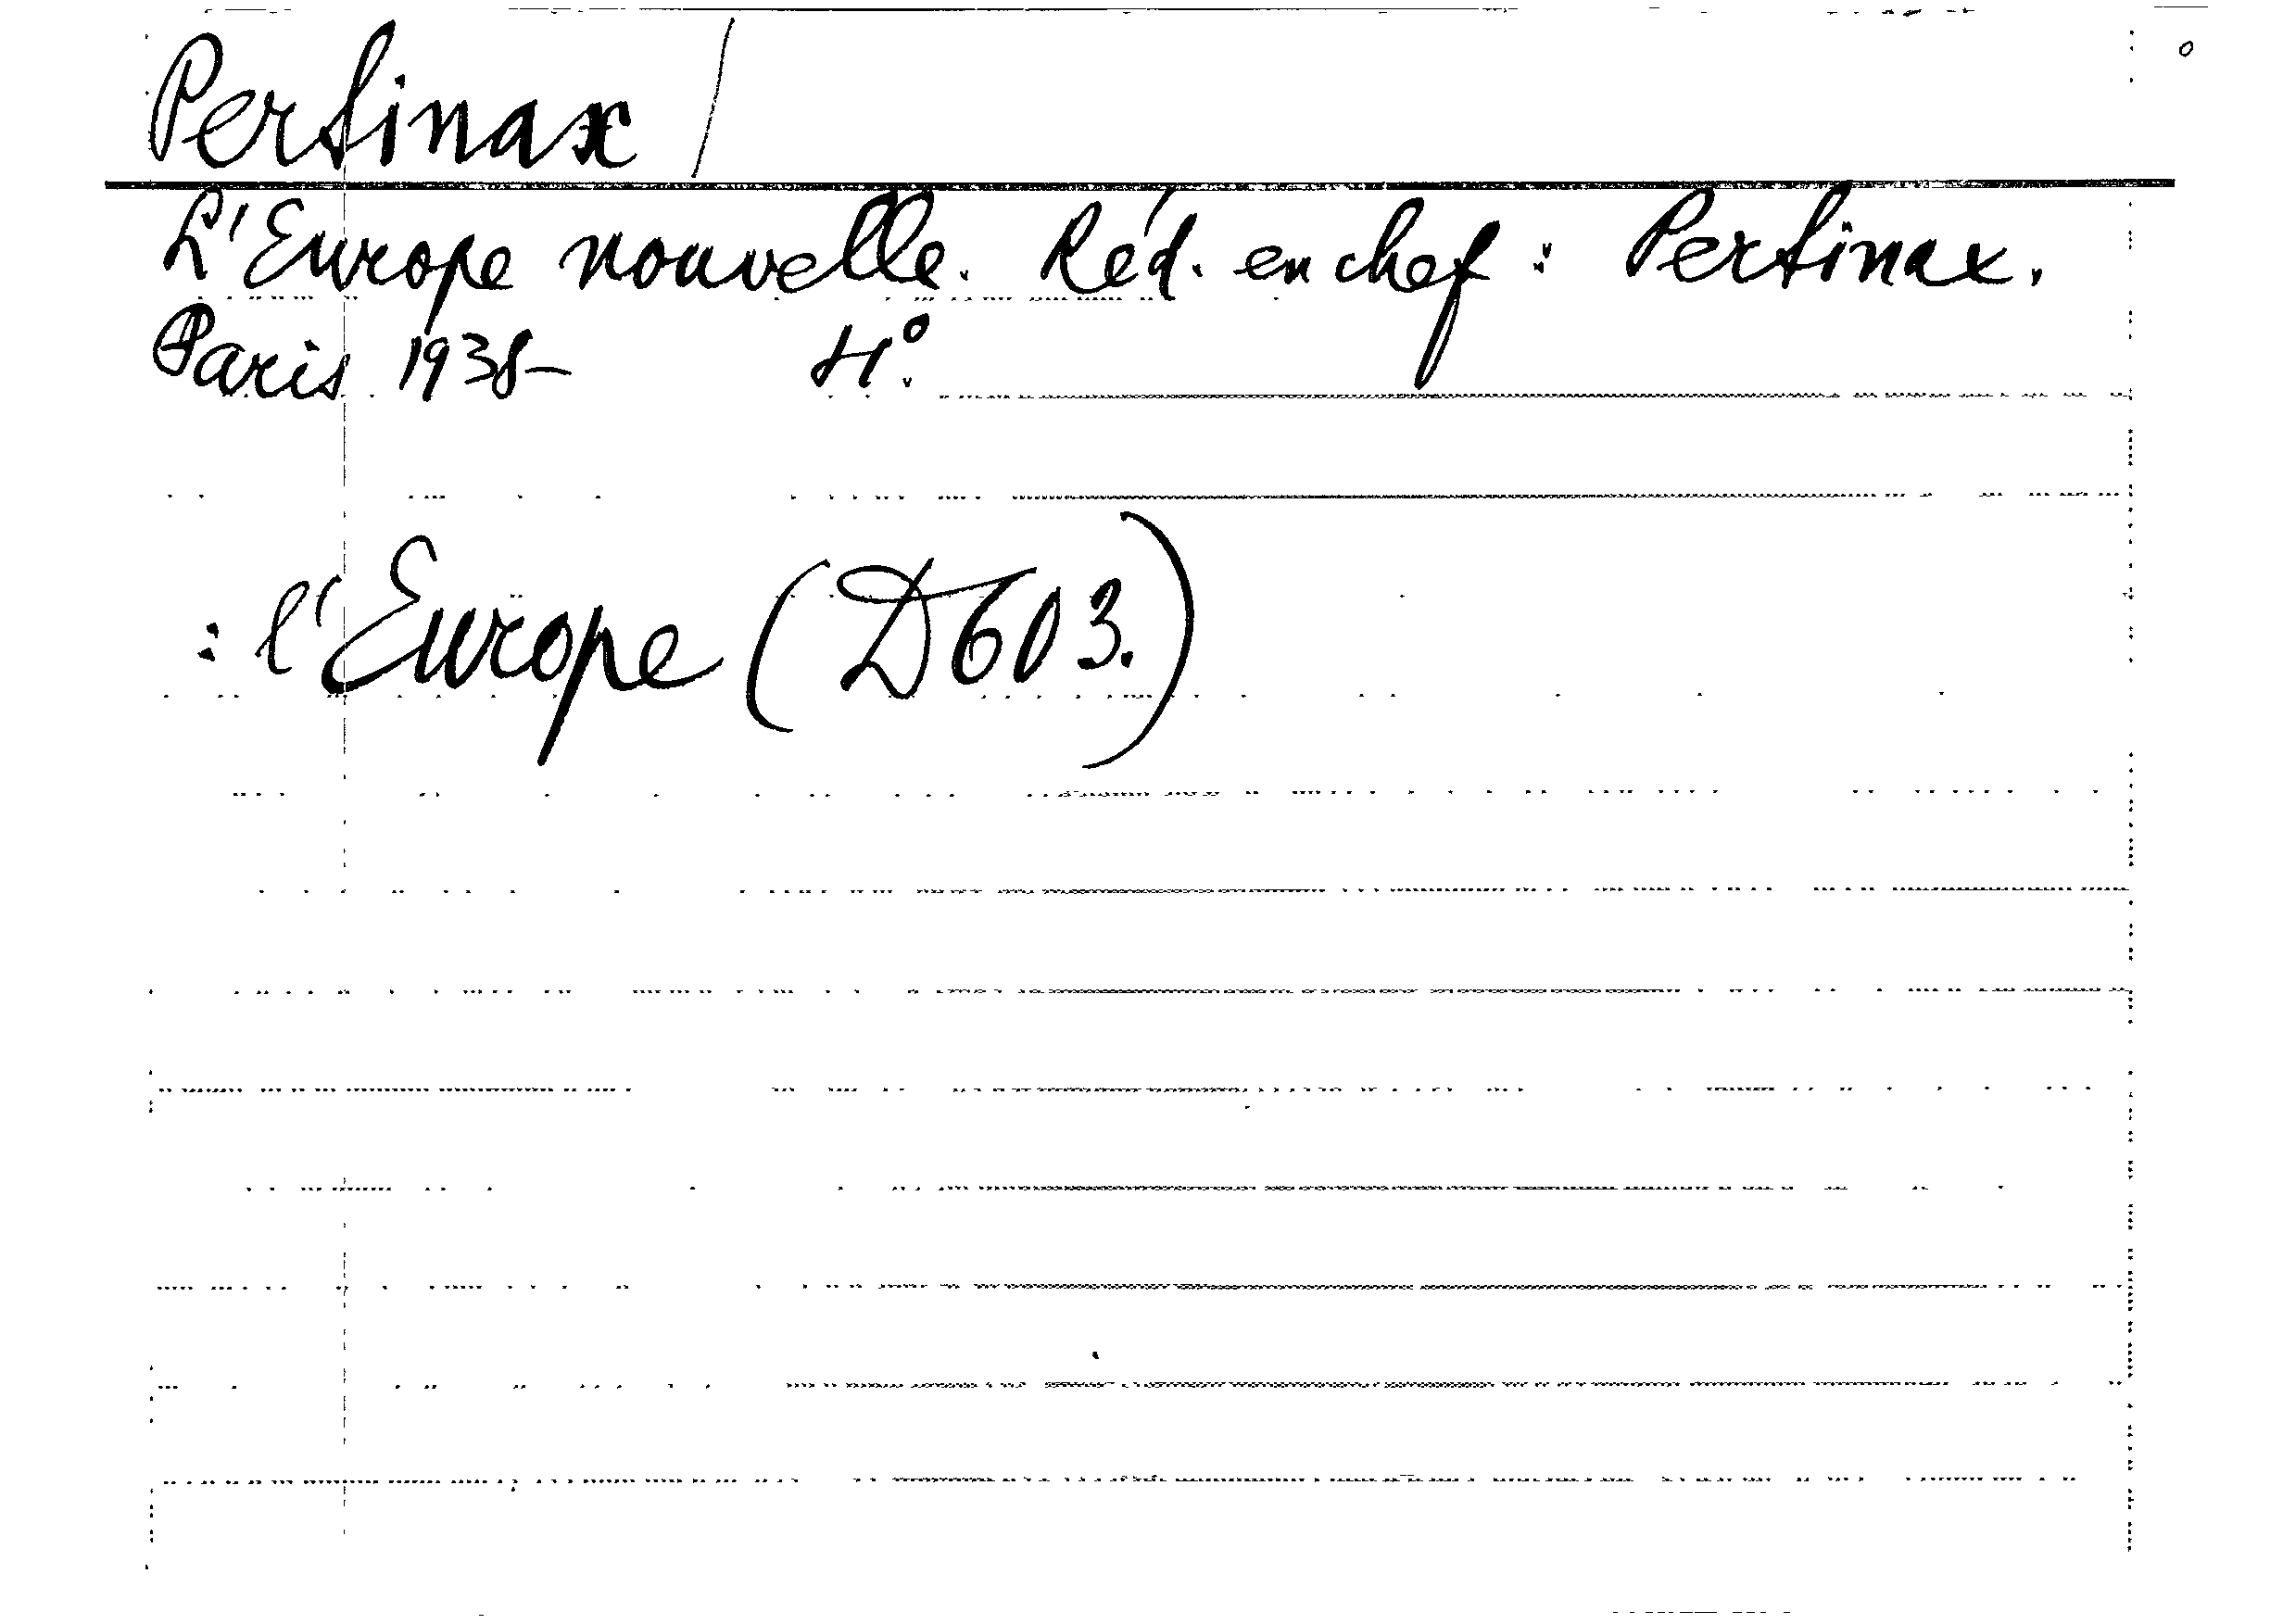 Pertinax /
L'Europe nouvelle. Réd. en chef: Pertinax.
Paris 1938- 4°.
: l'Europe (D603.)